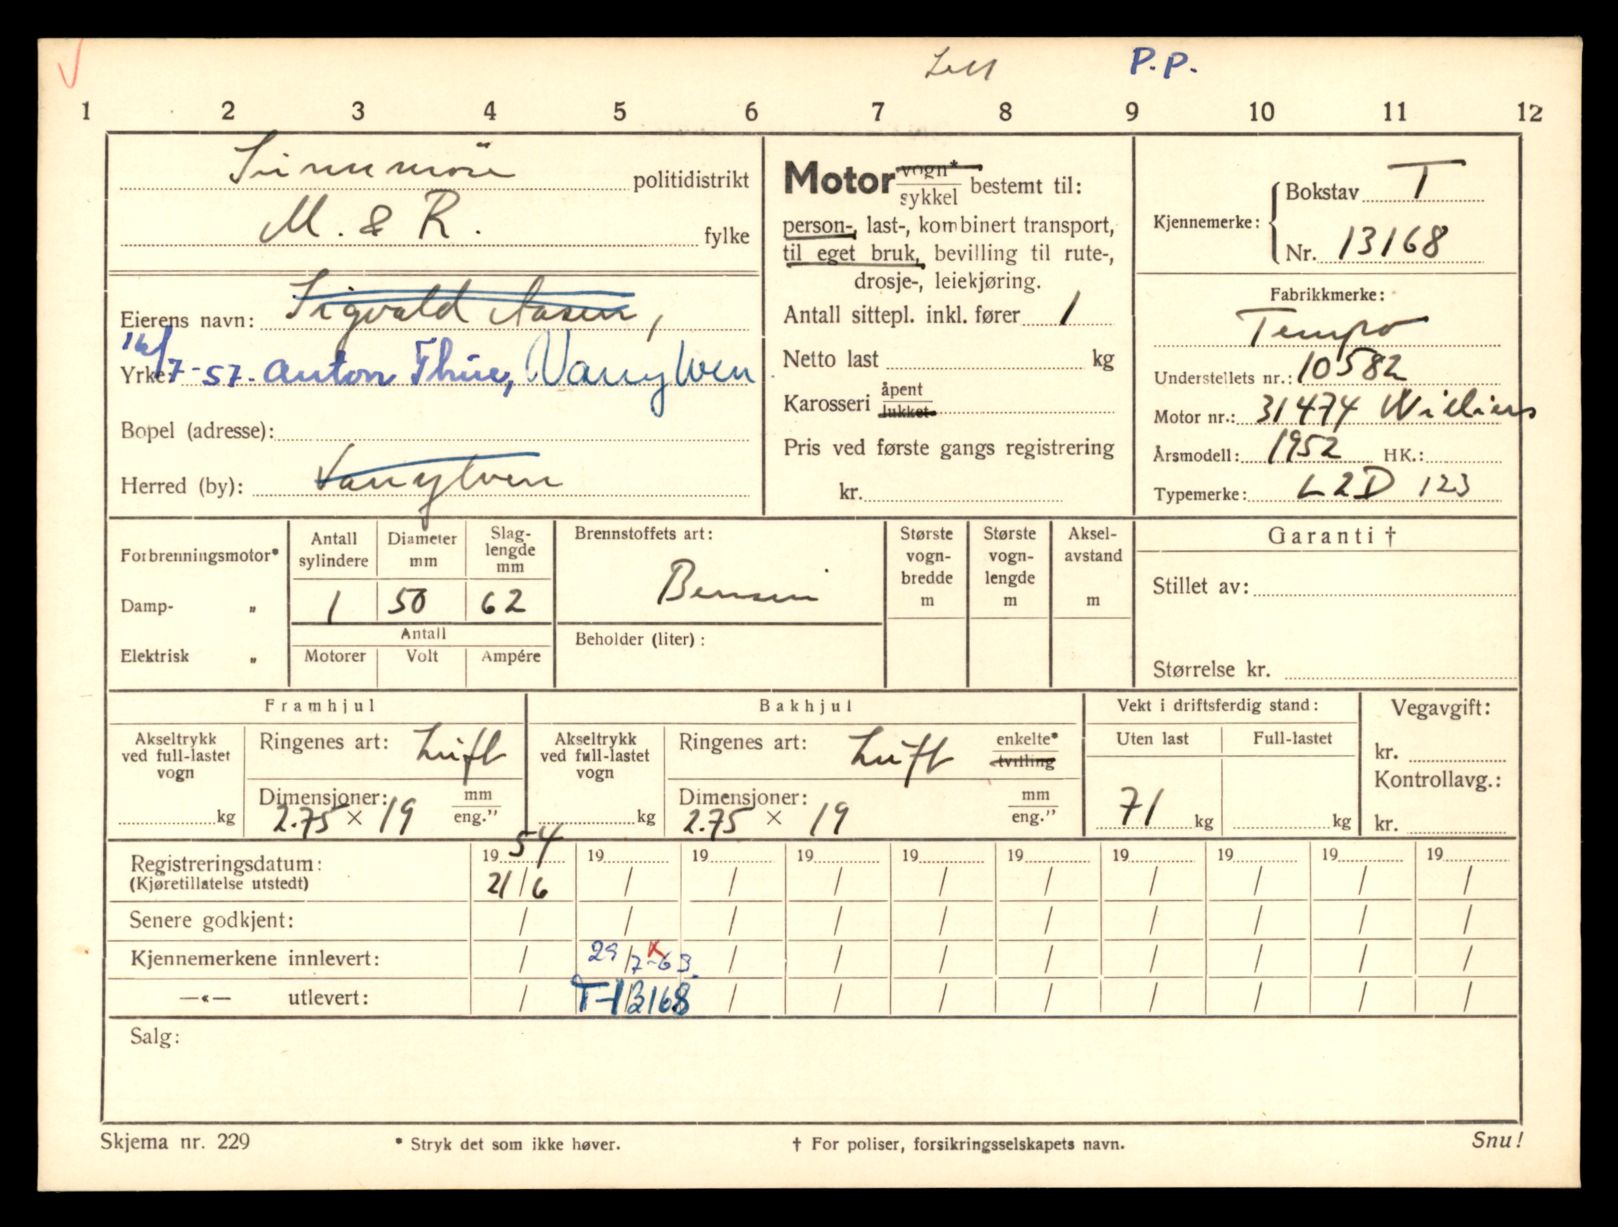 Lett P.P.
1 2 3 4 5 6 7 8 9 10 11 12
Sunnmöre politidistrikt
M. & R. fylke
Eierens navn: Sigvald Aasen,
16/7-57. Anton Thue, Vanylven
Yrke:
Bopel (adresse):
Herred (by): Vanylven
Motor vogn* sykkel bestemt til:
person-, last-, kombinert transport,
til eget bruk, bevilling til rute-,
drosje-, leiekjøring.
Antall sittepl. inkl. fører 1
Netto last kg
Karosseri åpent lukket
Pris ved første gangs registrering
kr.
Kjennemerke: Bokstav T
Nr. 13168
Fabrikkmerke:
Tempo
Understellets nr.: 10582
Motor nr.: 31474 Williers
Årsmodell: 1952 HK.:
Typemerke: L2D 123
Forbrenningsmotor*
Damp- „
Elektrisk „
Antall sylindere Diameter mm Slag-lengde mm
1 50 62
Antall
Motorer Volt Ampére
Brennstoffets art:
Bensin
Beholder (liter):
Største vogn-bredde m
Største vogn-lengde m
Aksel-avstand m
Garanti †
Stillet av:
Størrelse kr.
Framhjul
Akseltrykk ved full-lastet vogn
kg
Ringenes art: Luft
Dimensjoner: mm eng."
2.75 × 19
Bakhjul
Akseltrykk ved full-lastet vogn
kg
Ringenes art: Luft enkelte* tvilling
Dimensjoner: mm eng."
2.75 × 19
Vekt i driftsferdig stand:
Uten last Full-lastet
71 kg kg
Vegavgift:
kr.
Kontrollavg.:
kr.
Registreringsdatum: 1954 19 19 19 19 19 19 19 19 19
(Kjøretillatelse utstedt) 21/6 / / / / / / / / /
Senere godkjent: / / / / / / / / / /
Kjennemerkene innlevert: / 29/7-63. / / / / / / / /
—«— utlevert: / T-13168 / / / / / / / /
Salg:
Skjema nr. 229 * Stryk det som ikke høver. † For poliser, forsikringsselskapets navn. Snu!